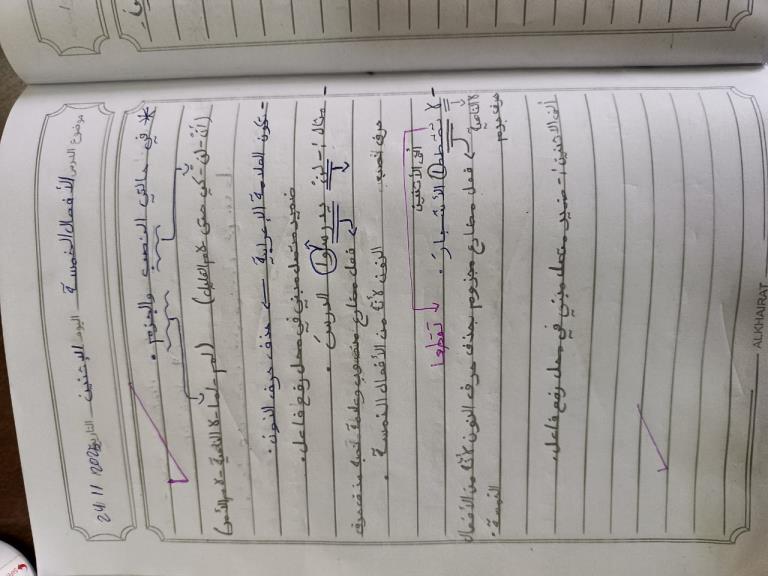 موضوع الدرس الأفعال الخمسة اليوم الإثنين التاريخ 24/11/2025
* في حالتي النصب والجزم .
(أنْ - لن - كي - حتى - لام التعليل) (لم - لما - لا الناهية - لام الأمر)
- تكون العلامة الإعرابية ← حذف حرف النون .
ضمير متصل مبني في محل رفع فاعل .
- مثال :- لن يدرسوا الدرسَ .
حرف نصب
فعل مضارع منصوب وعلامة نصبه حذف حرف
النون لأنه من الأفعال الخمسة .
ألف الاثنين
- لا تقطعا الأشجار . تقطعا
لا الناهية
حرف جزم
فعل مضارع مجزوم بحذف حرف النون لأنه من الأفعال
الخمسة .
ألف الاثنين :- ضمير متصل مبني في محل رفع فاعل .
ALKHAIRAT